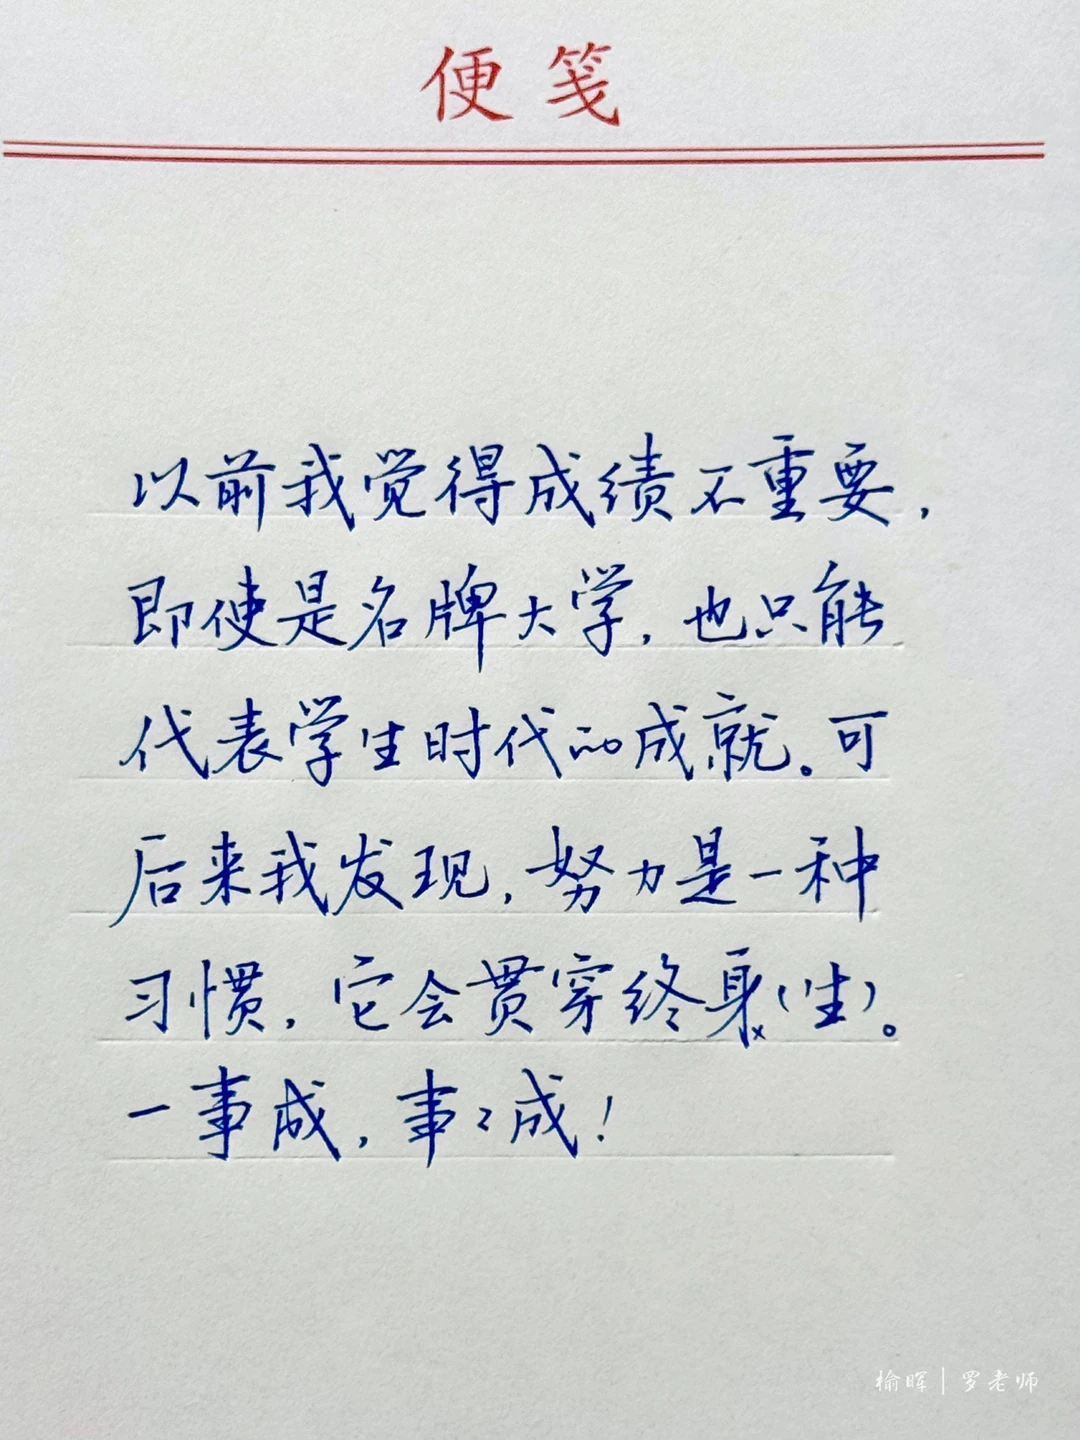 便笺
以前我觉得成绩不重要，
即使是名牌大学，也只能
代表学生时代的成就。可
后来我发现，努力是一种
习惯，它会贯穿终身x（生）。
一事成，事々成！
榆晖|罗老师